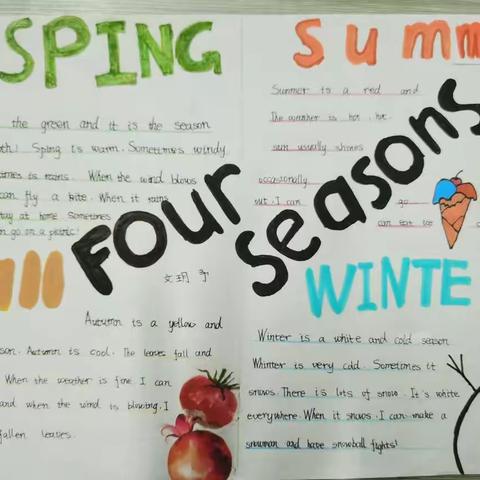 SPING
the green and it is the season
Sping is warm. Sometimes windy.
rains. When the wind blows
can fly a kite. When it rains
stay at home. Sometimes
go on a picnic!
SUMM
Summer is a red and
The weather is hot. hot.
sun usually shines
occasionally
out. I can go
can eat ice
FOUR
Seasons
Autumn is a yellow and
son. Autumn is cool. The leaves fall and
When the weather is fine I can
and when the wind is blowing, I
fallen leaves.
WINTE
Winter is a white and cold season
Whinter is very cold. Sometimes it
snows. There is lots of snow. It's white
everywhere. When it snows. I can make a
snowman and have snowball fights!